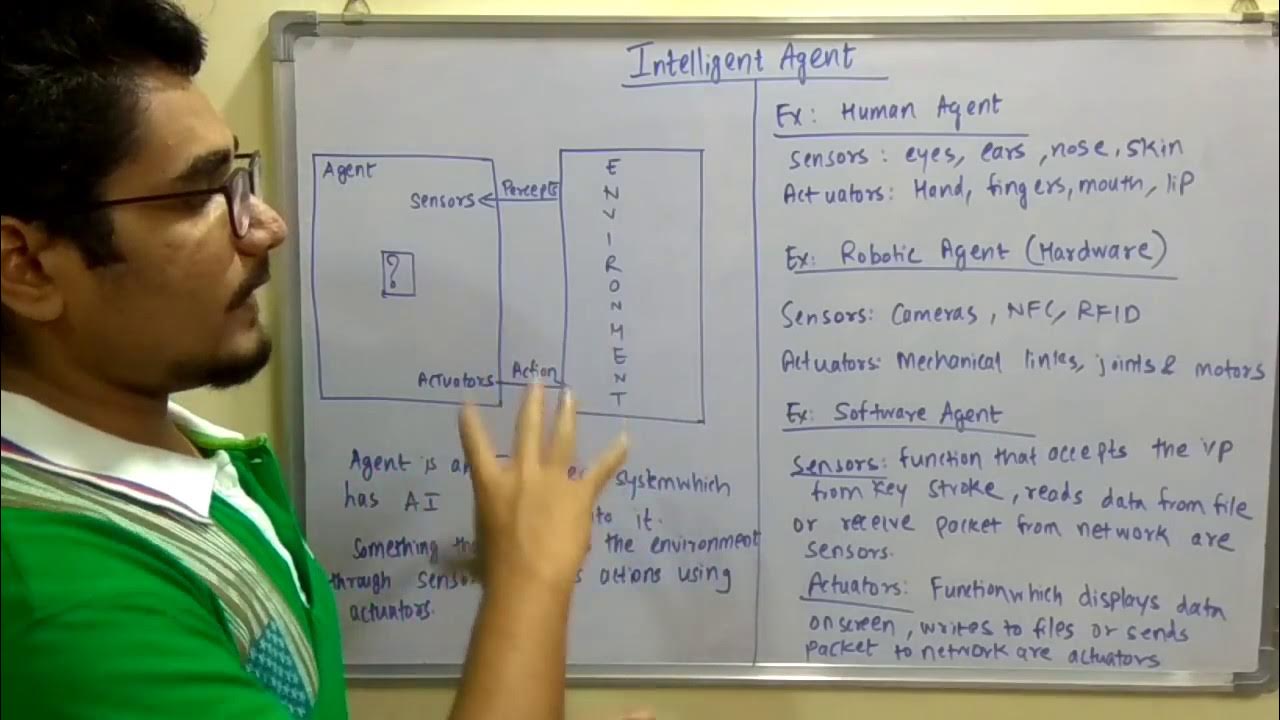 Intelligent Agent
Agent
Sensors
Percepts
?
ENVIRONMENT
Actuators
Action
Agent is an system which
has AI it.
Something the environment
through actions using
actuators.
Ex: Human Agent
Sensors: eyes, ears, nose, skin
Actuators: Hand, fingers, mouth, lip
Ex: Robotic Agent (Hardware)
Sensors: Cameras, NFC, RFID
Actuators: Mechanical links, joints & motors
Ex: Software Agent
Sensors: function that accepts the
from key stroke, reads data from file
or receive packet from network are
sensors.
Actuators: Function which displays data
on screen, writes to files or sends
packet to network are actuators